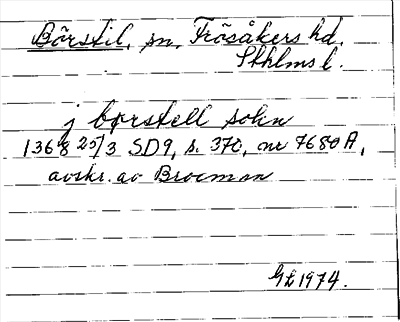 Börstil, sn, Frösåkers hd,
Sthlms l.
j børstell sokn
1368 25/3 SD9, s. 370, nr 7680A,
avskr. av Brocman
GL 1974.